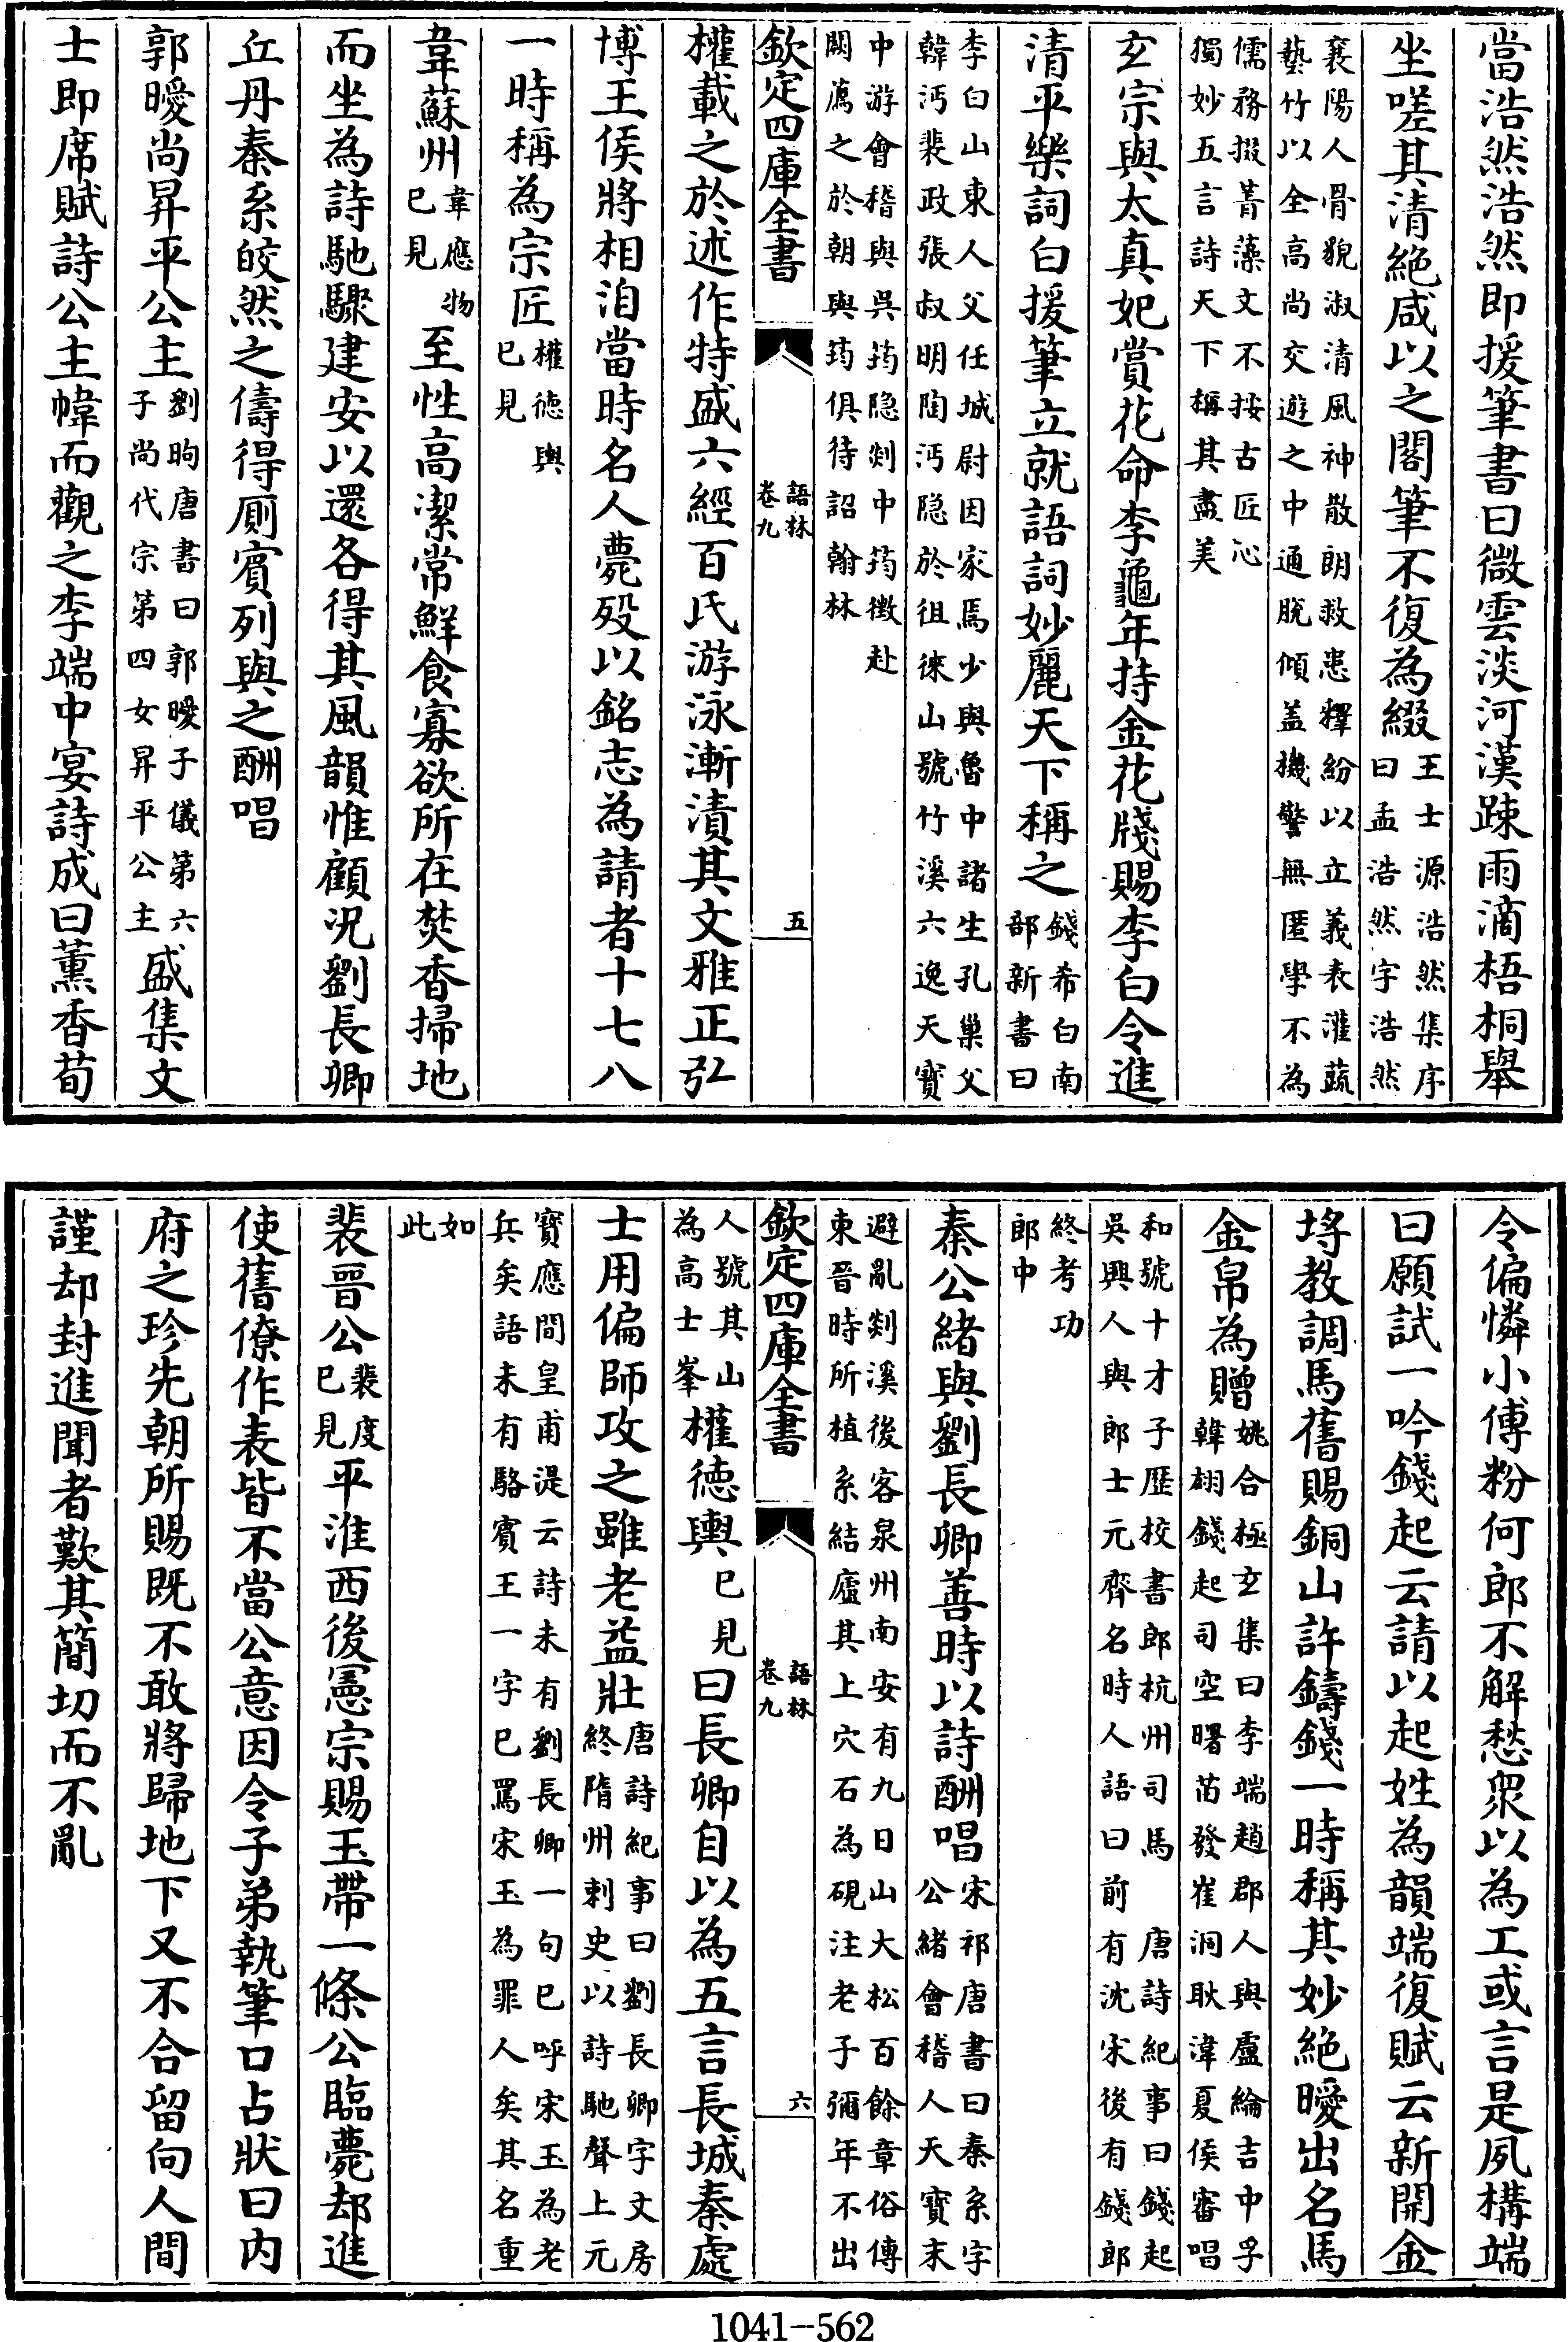 當浩然浩然即援筆書曰微雲淡河漢疎雨滴梧桐舉
坐嗟其清絕咸以之閣筆不復為綴王士源浩然集序曰孟浩然字浩然
襄陽人骨貌淑清風神散朗救患釋紛以立義表灌蔬藝竹以全高尚交遊之中通脫傾蓋機警無匿學不為
儒務掇菁藻文不按古匠心獨妙五言詩天下稱其盡美
玄宗與太真妃賞花命李龜年持金花牋賜李白令進
清平樂詞白援筆立就語詞妙麗天下稱之錢希白南部新書曰
李白山東人父任城尉因家焉少與魯中諸生孔巢父韓沔裴政張叔明陶沔隐於徂徠山號竹溪六逸天寶
中游會稽與吳筠隐剡中筠徵赴闕薦之於朝與筠俱待詔翰林
欽定四庫全書 語林卷九 五
權載之於述作特盛六經百氏游泳漸漬其文雅正弘
博王侯將相洎當時名人薨殁以銘志為請者十七八
一時稱為宗匠權德輿已見
韋蘇州韋應物已見至性高潔常鮮食寡欲所在焚香掃地
而坐為詩馳驟建安以還各得其風韻惟顧況劉長卿
丘丹秦系皎然之儔得厠賓列與之酬唱
郭曖尚昇平公主劉昫唐書曰郭曖子儀第六子尚代宗第四女昇平公主盛集文
士即席賦詩公主幃而觀之李端中宴詩成曰薰香荀
令偏憐小傅粉何郎不解愁衆以為工或言是夙構端
曰願試一吟錢起云請以起姓為韻端復賦云新開金
埒教調馬舊賜銅山許鑄錢一時稱其妙絶曖出名馬
金帛為贈姚合極玄集曰李端趙郡人與盧綸吉中孚韓翃錢起司空曙苗發崔洞耿湋夏侯審唱
和號十才子歷校書郎杭州司馬 唐詩紀事曰錢起吳興人與郎士元齊名時人語曰前有沈宋後有錢郎
終考功郎中
秦公緒與劉長卿善時以詩酬唱宋祁唐書曰秦系字公緒會稽人天寶末
避亂剡溪後客泉州南安有九日山大松百餘章俗傳東晉時所植系結廬其上穴石為硯注老子彌年不出
人號其山為高士峯權德輿已見曰長卿自以為五言長城秦處
欽定四庫全書 語林卷九 六
士用偏師攻之雖老益壯唐詩紀事曰劉長卿字文房終隋州刺史以詩馳聲上元
寶應間皇甫湜云詩未有劉長卿一句已呼宋玉為老兵矣語未有駱賓王一字已罵宋玉為罪人矣其名重
如此
裴晉公裴度已見平淮西後憲宗賜玉帶一條公臨薨却進
使舊僚作表皆不當公意因令子弟執筆口占狀曰內
府之珍先朝所賜既不敢將歸地下又不合留向人間
謹却封進聞者歎其簡切而不亂
1041-562